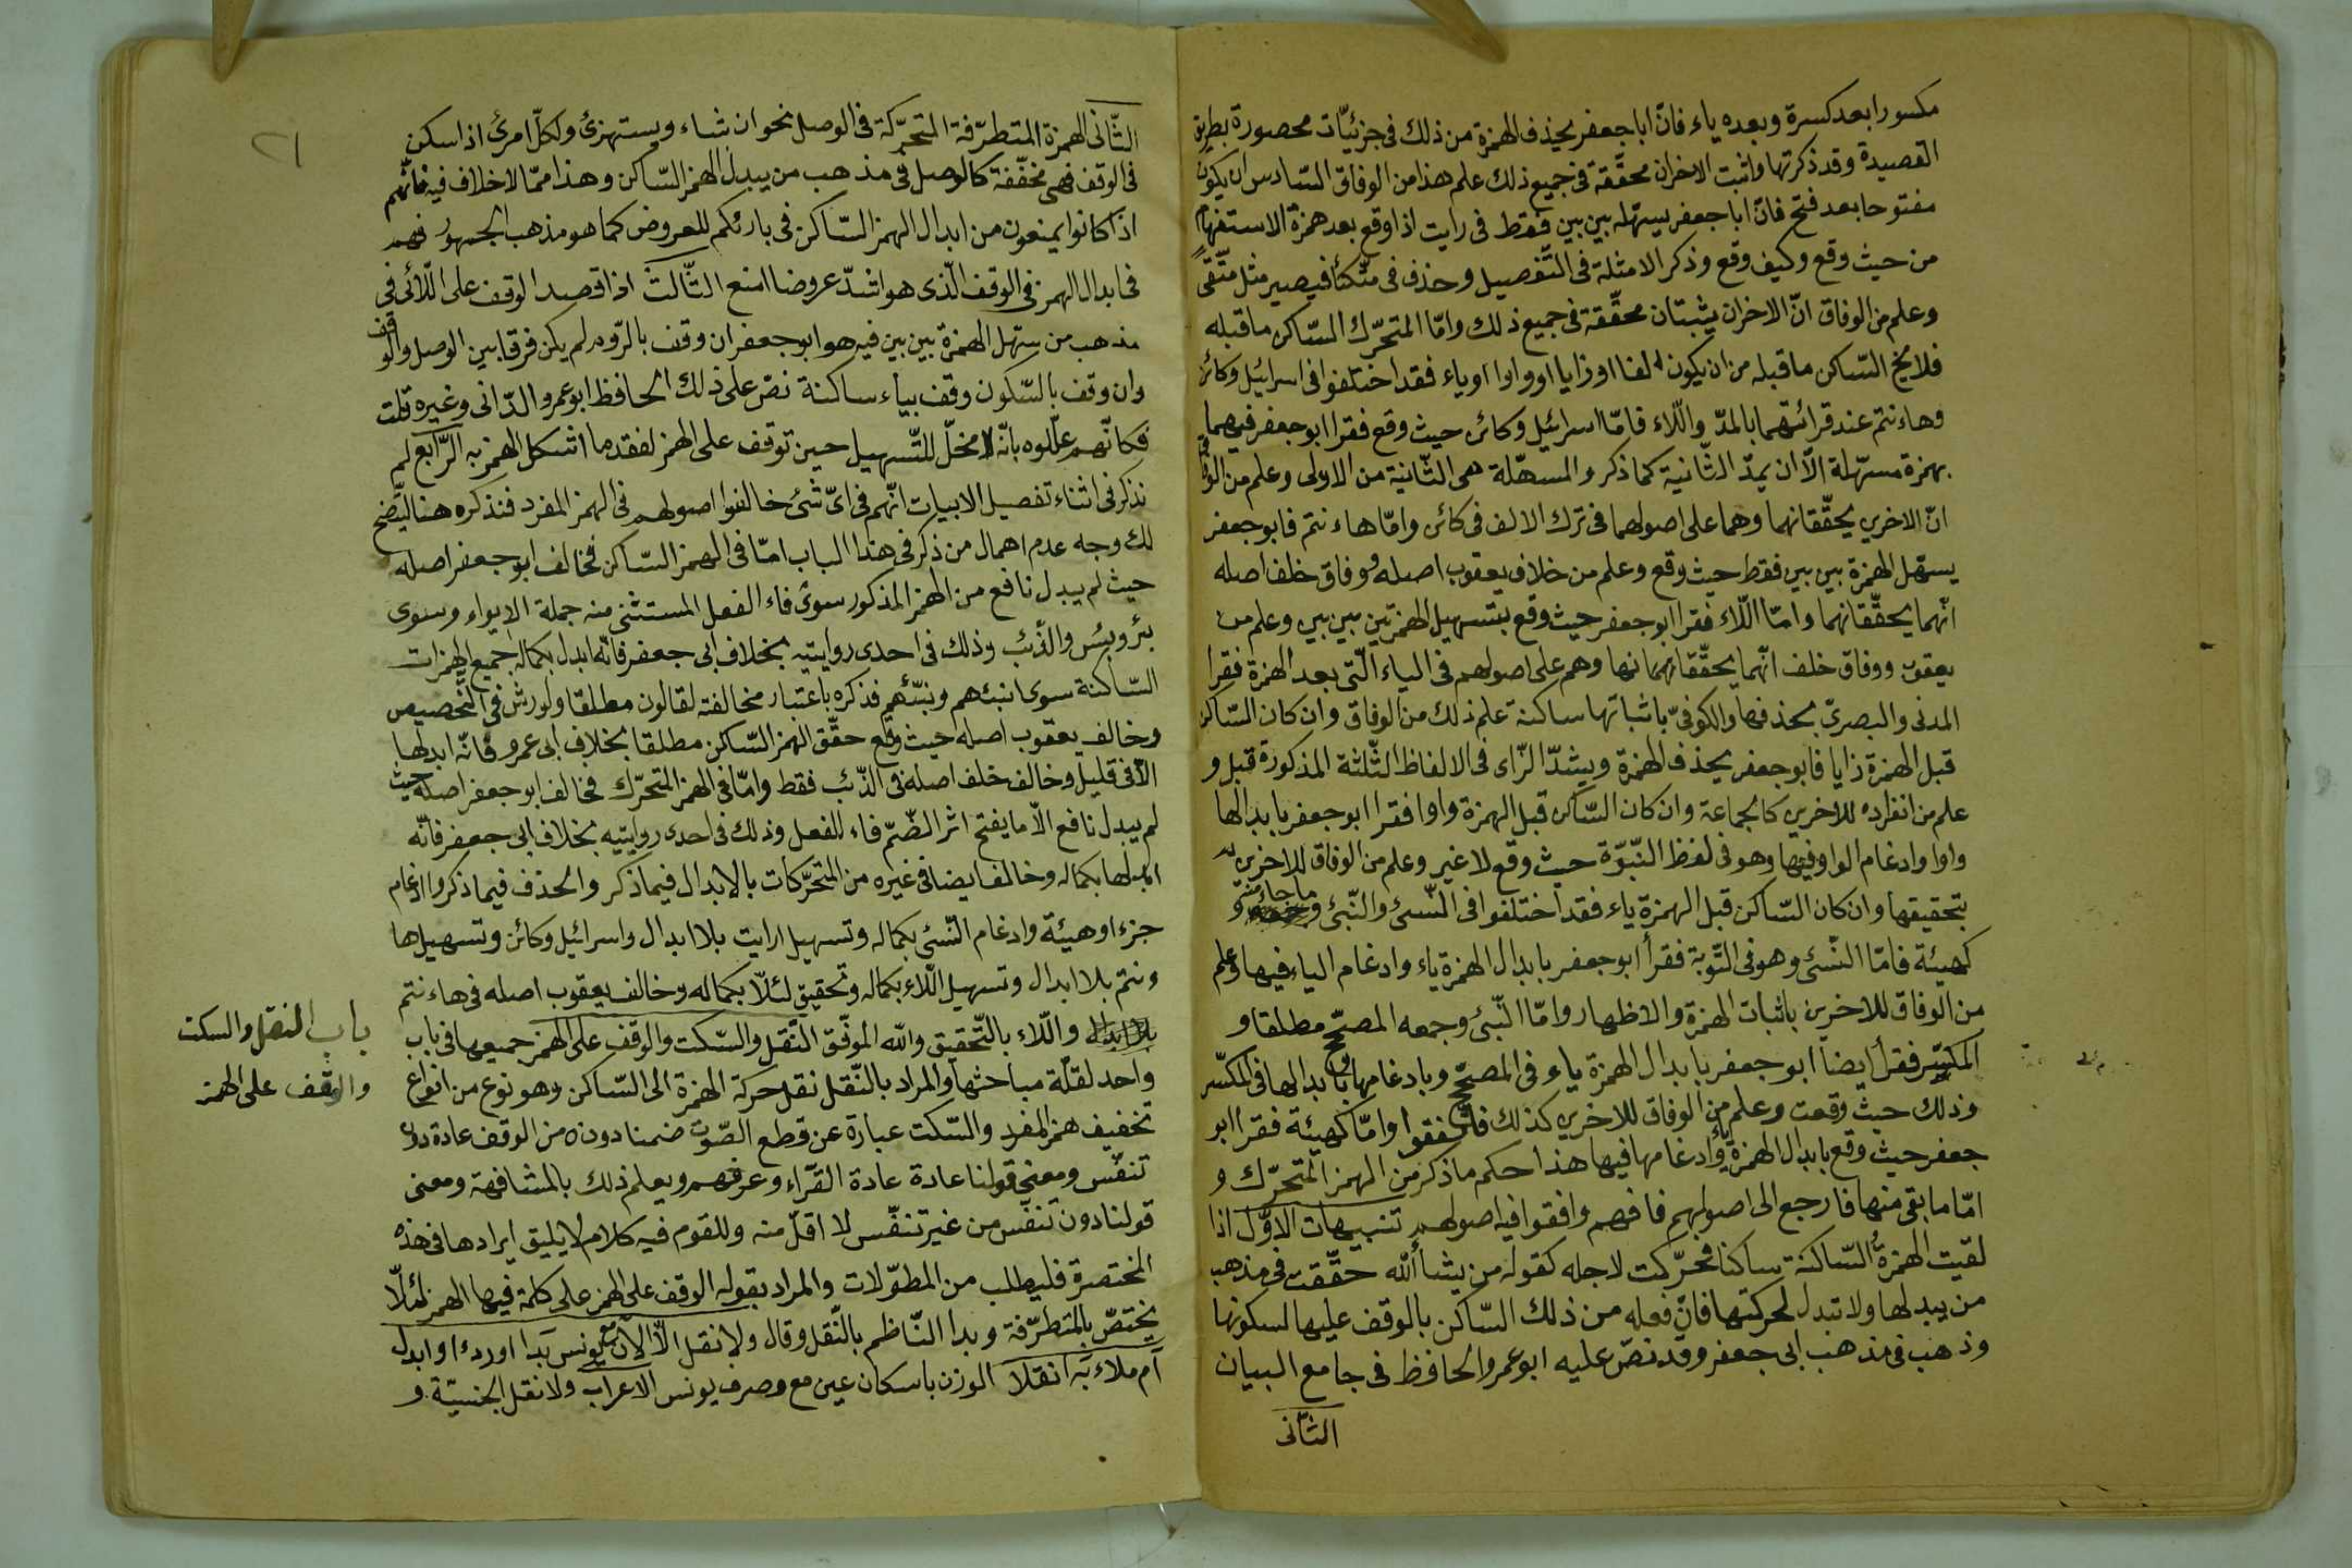 مكسورا بعد كسرة وبعده ياء فانّ ابا جعفر يحذف الهمزة من ذلك فى جزئيّات محصورة بطريق
القصيدة وقد ذكرتها واثبت الاخران محقّقة فى جميع ذلك علم هذا من الوفاق السّادس ان يكون
مفتوحا بعد فتح فانّ ابا جعفر يسهّله بين بين فقط فى رايت اذا وقع بعد همزة الاستفهام
من حيث وقع وكيف وقع وذكر الامثلة فى التّفصيل وحذف فى متّكئا فيصير مثل متّقى
وعلم من الوفاق انّ الاخران يثبتان محقّقة فى جميع ذلك وامّا المتحرّك السّاكن ما قبله
فلا يخ السّاكن ما قبله من ان يكون الفا او زايا او واوا او ياء فقد اختلفوا فى اسرائيل وكائن
وهاءنتم عند قرائتهما بالمدّ واللّاء فامّا اسرائيل وكائن حيث وقع فقرا ابو جعفر فيهما
بهمزة مسهّلة الّا ان يمدّ الثّانية كما ذكر والمسهّلة هى الثّانية من الاولى وعلم من الوفاق
انّ الاخرين يحقّقانهما وهما على اصولهما فى ترك الالف فى كائن وامّا هاءنتم فابو جعفر
يسهّل الهمزة بين بين فقط حيث وقع وعلم من خلاف يعقوب اصله ووفاق خلف اصله
انّهما يحقّقانهما وامّا اللّاء فقرا ابو جعفر حيث وقع بتسهيل الهمزتين بين بين وعلم من
يعقوب ووفاق خلف انّهما يحقّقانهما وهم على اصولهم فى الياء الّتى بعد الهمزة فقرا
المدنى والبصرىّ بحذفها والكوفىّ باثباتها ساكنة علم ذلك من الوفاق وان كان السّاكن
قبل الهمزة زايا فابو جعفر يحذف الهمزة ويشدّ الزّاء فى الالفاظ الثّلثة المذكورة قبل و
علم من انفراده للاخرين كالجماعة وان كان السّاكن قبل الهمزة واوا فقرا ابو جعفر بابدالها
واوا وادغام الواو فيها وهو فى لفظ النّبوّة حيث وقع لا غير وعلم من الوفاق للاخرين
بتحقيقها وان كان السّاكن قبل الهمزة ياء فقد اختلفوا فى النّسئ والنّبئ وما جاء منه و
كهيئة فامّا النّسئ وهو فى التّوبة فقرأ ابو جعفر بابدال الهمزة ياء وادغام الياء فيها وعلم
من الوفاق للاخرين باثبات الهمزة والاظهار وامّا النّبئ وجمعه المصحّح مطلقا و
المكسّر فقرأ ايضا ابو جعفر بابدال الهمزة ياء فى المصحّح وبادغامها بابدالها فى المكسّر
وذلك حيث وقعت وعلم من الوفاق للاخرين كذلك فاتّفقوا وامّا كهيئة فقرا ابو
جعفر حيث وقع بابدال الهمزة ياء وادغامها فيها هذا حكم ما ذكر من الهمز المتحرّك و
امّا ما بقى منها فارجع الى اصولهم فافهم وافقوا فيه اصولهم تنبيهات الاوّل اذا
لقيت الهمزة السّاكنة ساكنا فحرّكت لاجله كقوله من يشأ اللّه حقّقت فى مذهب
من يبدلها ولا تبدل لحركتها فانّ فعله من ذلك السّاكن بالوقف عليها لسكونها
وذهب فى مذهب ابى جعفر وقد نصّ عليه ابو عمرو الحافظ فى جامع البيان
الثّانى
٢١
الثّانى الهمزة المتطرّفة المتحرّكة فى الوصل نحو ان شاء ويستهزئ ولكلّ امرئ اذا سكن
فى الوقف فهى مخفّفة كالوصل فى مذهب من يبدل الهمز السّاكن وهذا ممّا لا خلاف فيه فانّهم
اذا كانوا يمنعون من ابدال الهمز السّاكن فى بارئكم للعروض كما هو مذهب الجمهور فهم
فى ابدال الهمز فى الوقف الّذى هو اشدّ عروضا امنع الثّالث اذا قصد الوقف على اللّائى فى
مذهب من سهّل الهمزة بين بين فيه هو ابو جعفر ان وقف بالرّوم لم يكن فرقا بين الوصل والوقف
وان وقف بالسّكون وقف بياء ساكنة نصّ على ذلك الحافظ ابو عمرو الدّانى وغيره قلت
فكانّهم علّلوه بانّه لا مخلّ للتّسهيل حين توقف على الهمز لفقد ما اشكل الهمز به الرّابع لم
نذكر فى اثناء تفصيل الابيات انّهم فى اىّ شئ خالفوا اصولهم فى الهمز المفرد فنذكره هنا ليتّضح
لك وجه عدم اهمال من ذكر فى هذا الباب امّا فى الهمز السّاكن فخالف ابو جعفر اصله
حيث لم يبدل نافع من الهمز المذكور سوى فاء الفعل المستثنى منه جملة الايواء وسوى
بئر وبئس والذّئب وذلك فى احدى روايتيه بخلاف ابى جعفر فانّه ابدل بكماله جميع الهمزات
السّاكنة سوى انبئهم ونبّئهم فذكره باعتبار مخالفته لقالون مطلقا ولورش فى التّخصيص
وخالف يعقوب اصله حيث وقع حقّق الهمز السّاكن مطلقا بخلاف ابى عمرو فانّه ابدلها
الّا فى قليل وخالف خلف اصله فى الذّئب فقط وامّا فى الهمز المتحرّك فخالف ابو جعفر اصله حيث
لم يبدل نافع الّا ما يفتح اثر الضّمّ فاء للفعل وذلك فى احدى روايتيه بخلاف ابى جعفر فانّه
ابدلها بكماله وخالف ايضا فى غيره من المتحرّكات بالابدال فيما ذكر والحذف فيما ذكر وادغام
جزءا وهيئة وادغام النّسئ بكماله وتسهيل ارايت بلا ابدال واسرائيل وكائن وتسهيل ها
ءنتم بلا ابدال وتسهيل اللّاء بكماله وتحقيق لئلّا بكماله وخالف يعقوب اصله فى هاءنتم
بلا ابدال واللّاء بالتّحقيق واللّه الموفّق النّقل والسّكت والوقف على الهمز جميعها فى باب
باب النقل والسكت
واحد لقلّة مباحثها والمراد بالنّقل نقل حركة الهمزة الى السّاكن وهو نوع من انواع
والوقف على الهمز
تخفيف همز المفرد والسّكت عبارة عن قطع الصّوت ضمنا دونه من الوقف عادة دون
تنفّس ومعنى قولنا عادة عادة القرّاء وعرفهم ويعلم ذلك بالمشافهة ومعنى
قولنا دون تنفّس من غير تنفّس لا اقلّ منه وللقوم فيه كلام لا يليق ايرادها فى هذه
المختصرة فليطلب من المطوّلات والمراد بقوله الوقف على الهمز على كلمة فيها الهمز لئلّا
يختصّ بالمتطرّفة وبدا النّاظم بالنّقل وقال ولا نقل الّا الآن مع يونس بدا او ردءا وابدل
ام ملاء به انقلا الوزن باسكان عين مع وصرف يونس الاعراب ولا نقل الجنسيّة و